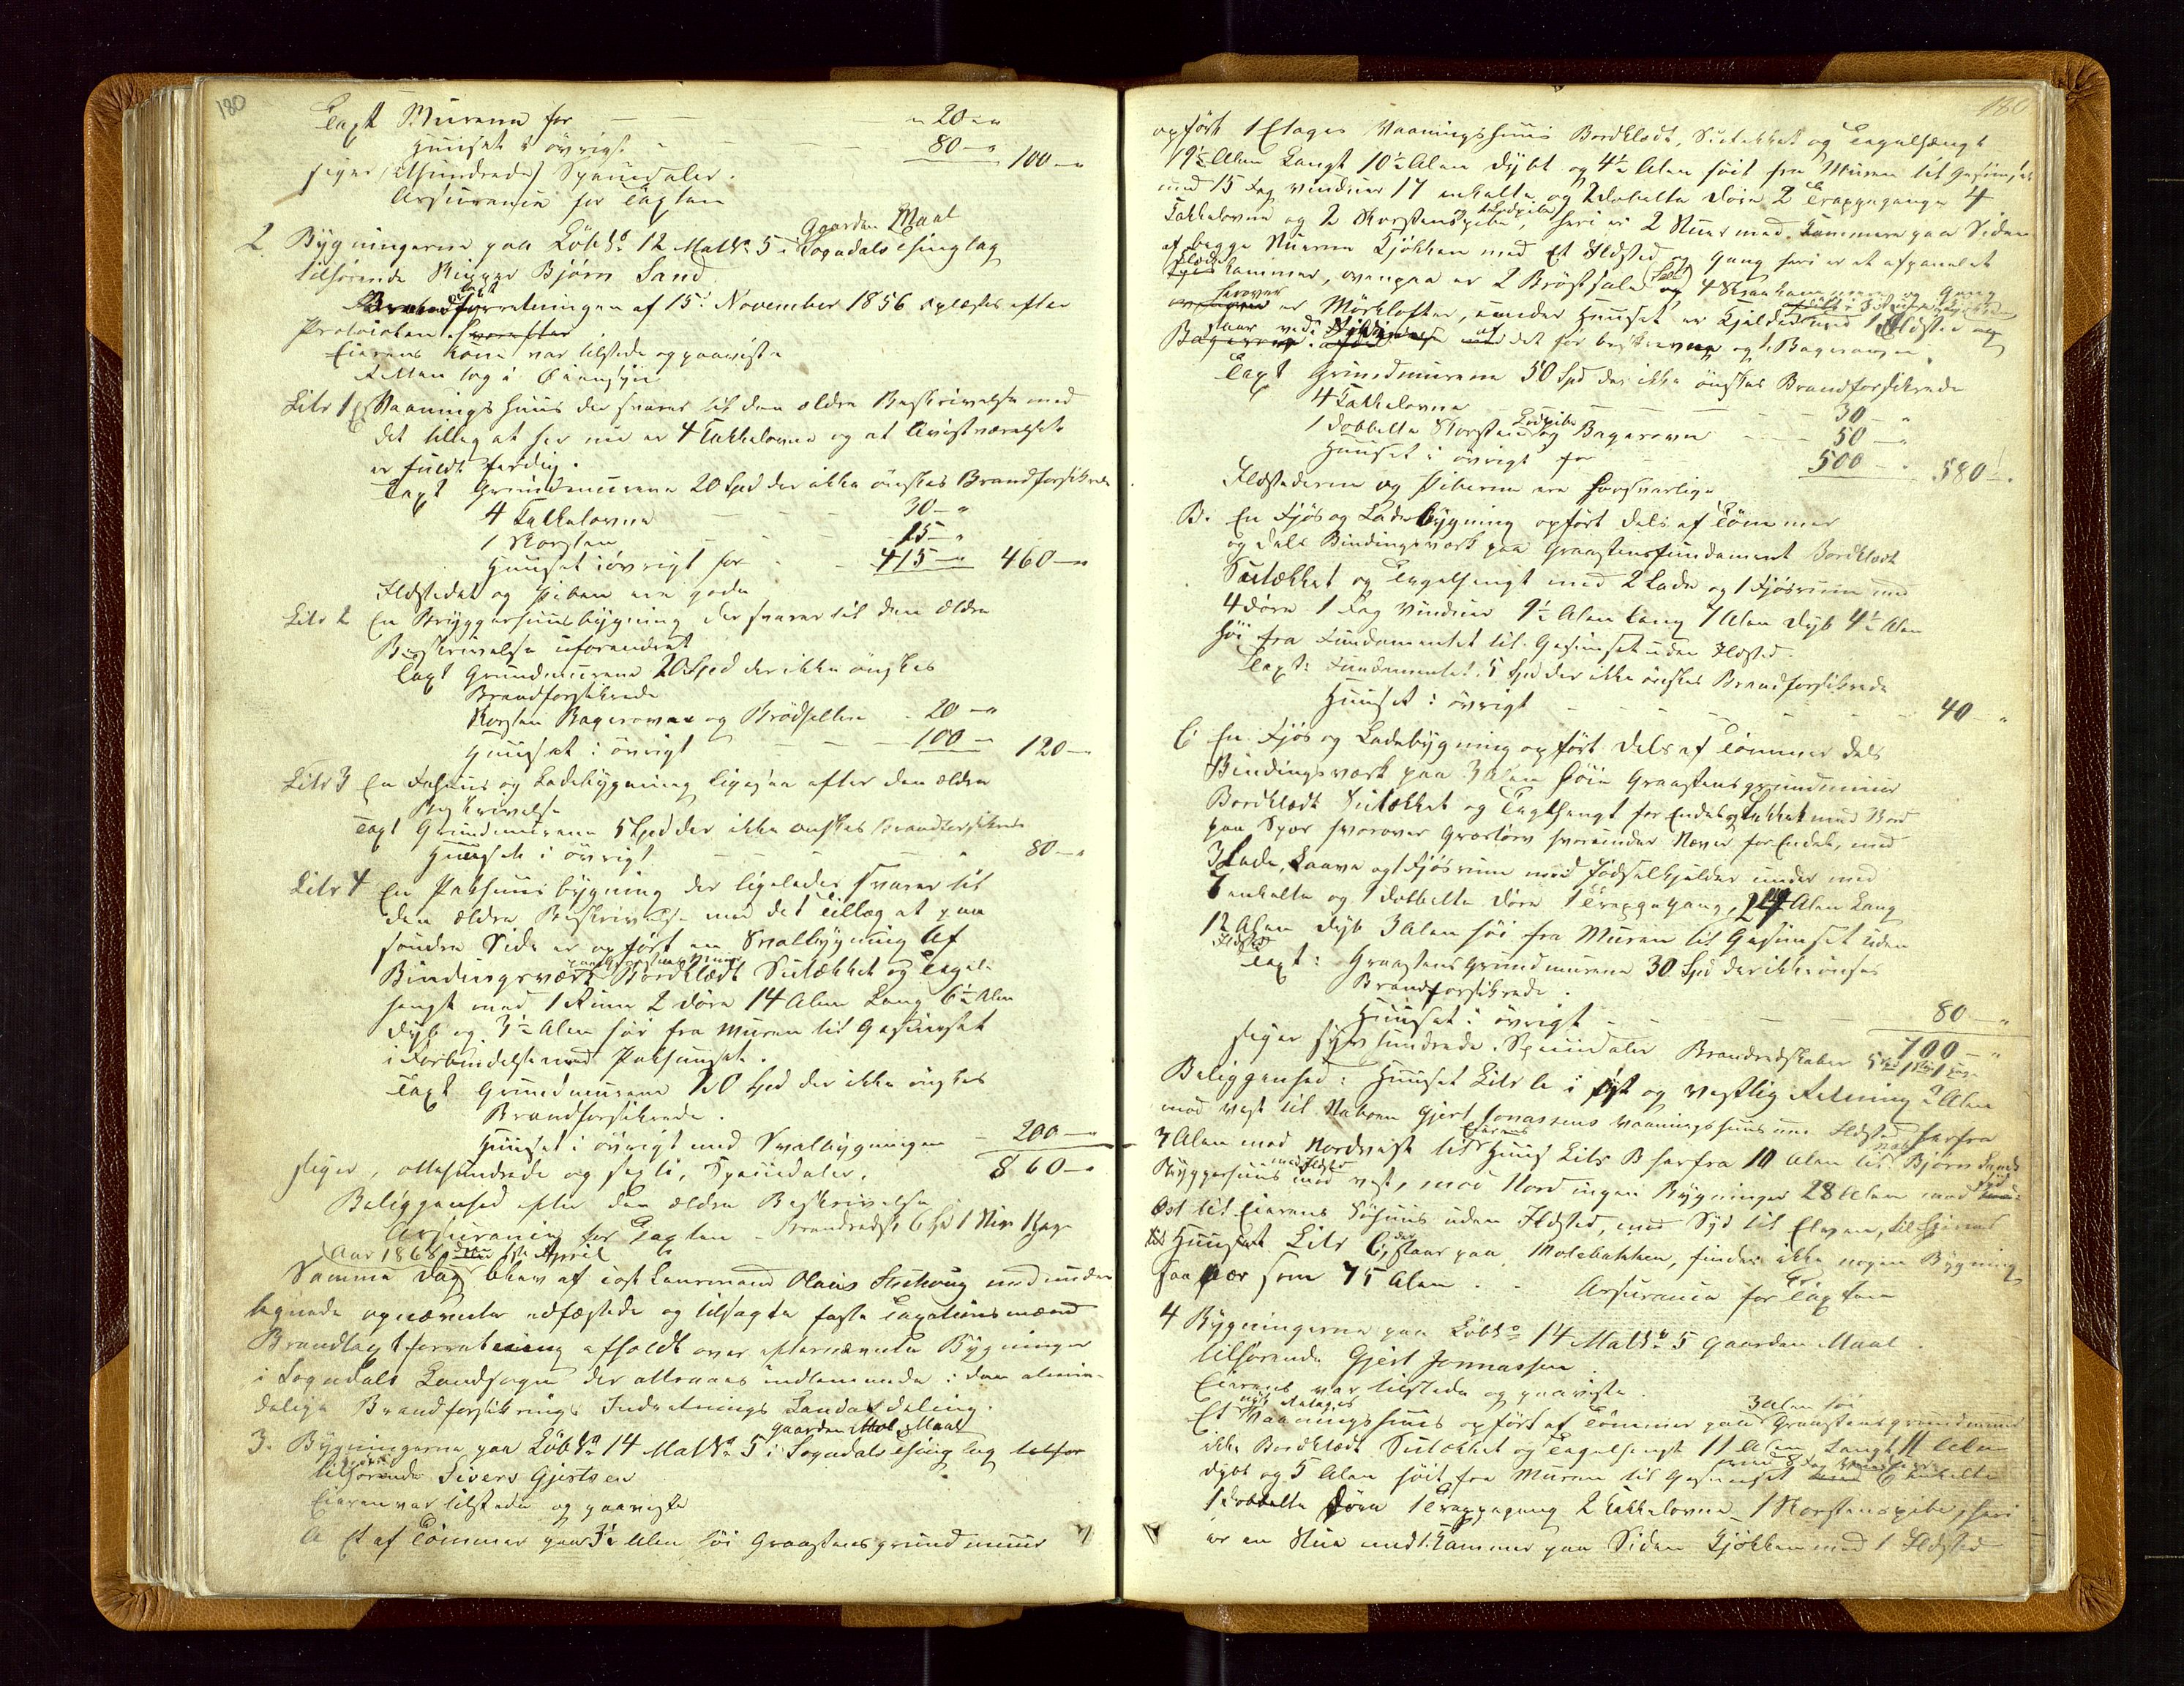 180
Taxt Murene for — — „ 20 „
Huuset i övrigt - — — 80 — „ 100 — „
siger Ethundrede Speciedaler.
Assurance for Taxten
Gaarden Maal
2. Bygningerne paa Löb No 12 Mat No 5 i Sogndals Thinglag
tilhörende Ringer Björn Sand
Brandtaxtforretningen af 15de November 1856 oplæstes efter
Protocolen hvorefter
Eierens Kone var tilstede og paaviste
Retten tog i Öiensyn
Litr 1 Et Vaaningshuus der svarer til den ældre Beskrivelse med
det tillæg at her nu er 4 Kakkelovne og at Qvistværelset
er fuldt færdig.
Taxt Grundmurene 20 Spd der ikke önskes Brandforsikrede
4 Kakkelovne — — 30 — „
1 Skorsten - — 15 — „
Huuset i övrigt for - 415 — „ 460 — „
Ildstedet og Piben ere gode
Litr 2 En Bryggerhuusbygning der svarer til den ældre
Beskrivelse uforandret
Taxt Grundmurene 20 Spd der ikke önskes
Brandforsikrede
Skorsten Bagerovn og Brödhelle - 20 — „
Huuset i övrigt — — 100 — 120 — „
Litr 3 En Fæhuus og Ladebygning ligesaa efter den ældre
Beskrivelse
Taxt Grundmurene 5 Spd der ikke önskes Brandforsikrede
Huuset i övrigt — — „ 80 — „
Litr 4 En Pakhuusbygning der ligeledes svarer til
den ældre Beskrivelse med det Tillæg at paa
söndre Side er opfört en Svalbygning af
Bindingsværk Bordklædt Suetækket og Tegel-
hængt med 1 Ruum 2 Döre 14 Alen Lang 6½ Alen
dyb og 3½ Alen höi fra Muren til Gesimset
i Forbindelse med Pakhuuset.
Taxt Grundmurene 20 Spd der ikke önskes
Brandforsikrede.
Huuset i övrigt med Svalbygningen - 200 — „
siger, ottehundrede og sexti, Speciedaler. 860 — „
Beliggenhed efter den ældre Beskrivelse
Assurance for Taxten - Brandredsk. 6 Spd 1 Stige 1 Hage
Aar 1868 den 1ste April
Samme Dag blev af cost Lensmand Olaus Stuhoug med under
tegnede opnævnte edfæstede og tilsagte faste Taxationsmænd
Brandtaxtforretning afholdt over efternævnte Bygninger
i Sogndals Landsogn der attraaes indlemmede i den almin-
delige Brandforsikrings Indretnings Landafdeling.
Gaarden Mol Maal
3. Bygningerne paa Löb No 14 Mat No 5 i Sogndals Thinglag tilhör
tilhörende Sivers Gjertsen
Eieren var tilstede og paaviste
A Et af Tömmer paa 3½ Alen höi Graastensgrundmuur
180
opfört 1 Etages Vaaningshuus Bordklædt, Suetækket og Tegelhængt
19½ Alen Langt 10½ Alen dybt og 4½ Alen höit fra Muren til Gesimset
med 15 Fag Vinduer 17 enkelte og 2 dobelte Döre 2 Trappegange 4
Kakkelovne og 2 Skorstenspiber, heri er 2 Stuer med Kammere paa Siden
af begge Stuerne Kjökken med Et Ildsted og Gang heri er et afpanelet
Kammer, ovenpaa er 2 Bröstsale og 4 Skraakammere og Gang
herover er Mörkloftet, under Huuset er Kjelder med 1 Ildsted og
det för beskrevne og 1 Bagerovn.
Taxt Grundmurene 50 Spd der ikke önskes Brandforsikrede
4 Kakkelovne — — — 30 — „
1 dobbelte Skorsten og Bagerovn - — 50 — „
Huuset i övrigt for — — 500 — „ 580 — „
Ildstederne og Piberne ere forsvarlige
B. En Fjös og Ladebygning opfört dels af Tömmer
og dels Bindingsværk paa Graastensfundament Bordklædt
Suetækket og Tegelhængt med 2 Lade og 1 Fjösruum med
4 Döre 1 Fag Vinduer 9½ Alen Lang 7 Alen dyb 4½ Alen
höi fra Fundamentet til Gesimset uden Ildsted.
Taxt: Fundamentet 5 Spd der ikke önskes Brandforsikrede
Huuset i övrigt — — — — 40 — „
C En Fjös og Ladebygning opfört dels af Tömmer dels
Bindingsværk paa 3 Alen höie Graastensgrundmuur
Bordklædt Suetækket og Teglhængt for Endel og Tækket med Bord
paa Spær hvorover Græstörv hvorunder Næver for Endel, med
3 Lade, Laave og 1 Fjösruum med Födselkjelder under med
7 enkelte og 1 dobbelte Döre 1 Trappegang, 24 Alen Lang
12 Alen dyb 3 Alen höi fra Muren til Gesimset uden
Ildsted
Taxt: Graastens Grundmurene 30 Spd der ikke önskes
Brandforsikrede.
Huuset i övrigt - — — 80 — „
siger syvhundrede Speciedaler Brandredskaber 700 — „
Beliggenhed: Huuset Litr A i öst og vestlig Retning 2 Alen
mod Vest til Naboen Gjert Jonassens Vaaningshuus med Ildsted herfra
7 Alen mod Nordvest til Eierens Huus Litr B herfra 10 Alen til Björn Sands
Bryggerhuus med Ildsted mod Vest, mod Nord ingen Bygninger 28 Alen mod Syd-
Ost til Eierens Söhuus uden Ildsted, mod Syd til Elven, til Eierens
Huuset Litr C, der staar paa Molebakken, findes ikke nogen Bygning
saa nær som 75 Alen. - Assurance for Taxten
4 Bygningerne paa Löb No 14 Mat No 5 Gaarden Maal.
tilhörende Gjert Jonnassen.
Eieren var tilstede og paaviste.
Et Vaaningshuus opfört af Tömmer paa 3 Alen höi Graastensgrundmuur
ikke Bordklædt Suetækket og Tegelhængt 11 Alen Langt 11 Alen
dybt og 5 Alen höit fra Muren til Gesimset med 8 Fag Vinduer 6 enkelte
1 dobbelte Döre 1 Trappegang 2 Kakkelovne 1 Skorstenspibe, heri
er en Stue med 1 Kammer paa Siden Kjökken med 1 Ildsted